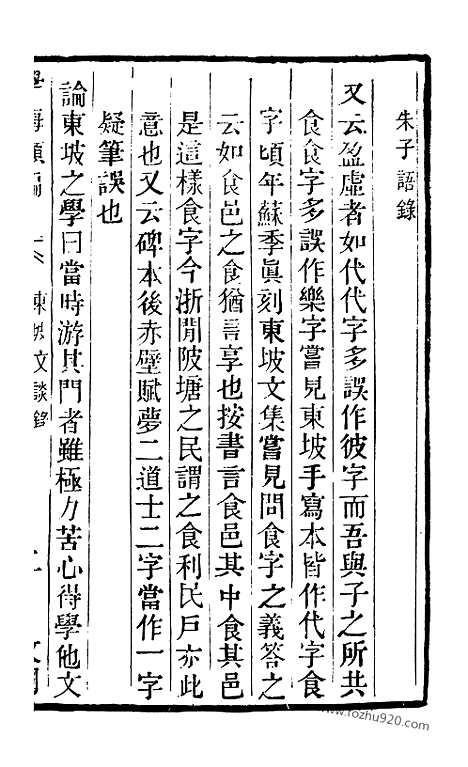 朱子語錄
又云盈虛者如代代字多誤作彼字而吾與子之所共
食食字多誤作樂字嘗見東坡手寫本皆作代字食
字頃年蘇季眞刻東坡文集嘗見問食字之義答之
云如食邑之食猶言享也按書言食邑其中食其邑
是這樣食字今浙閒陂塘之民謂之食利民戶亦此
意也又云碑本後赤壁賦夢二道士二字當作一字
疑筆誤也
論東坡之學曰當時游其門者雖極力苦心得學他文
東坡文談錄
www.fozhu920.com